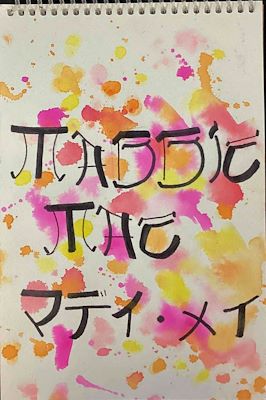 MADDIE
MAE
マディ・メイ